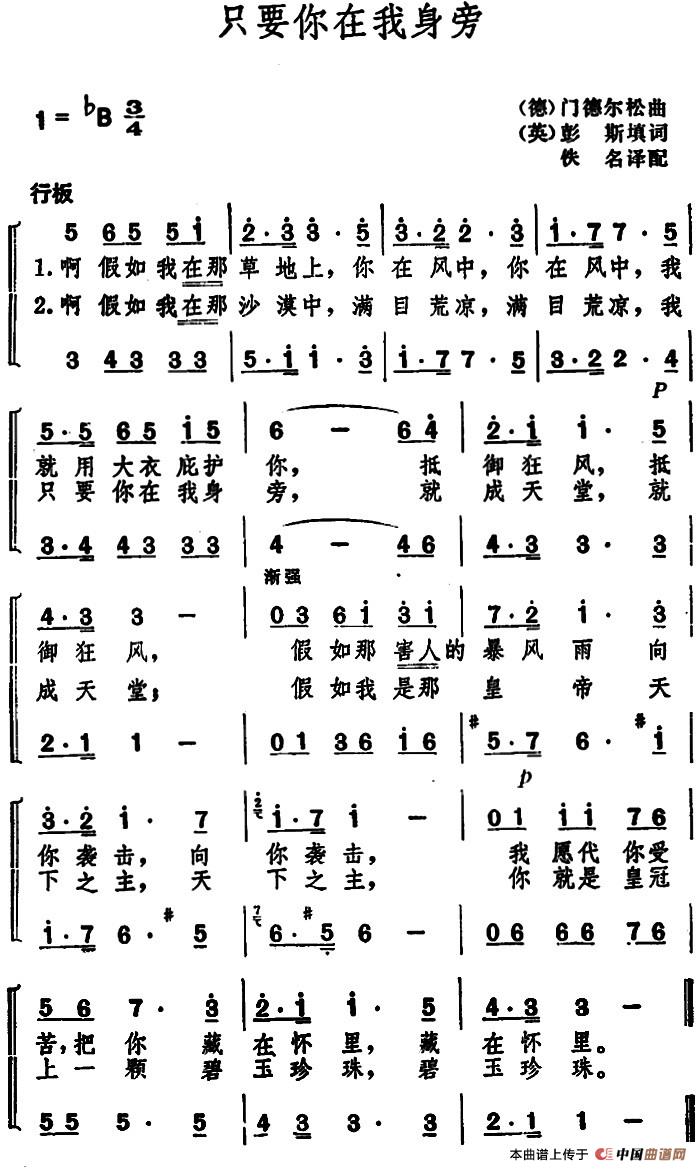 只要你在我身旁
1 = ♭B 3/4
(德)门德尔松曲
(英)彭 斯填词
佚 名译配
行板
5 6 5 5 i | 2·3 3·5 | 3·2 2·3 | i·7 7·5
1.啊 假如我在那 草地上，你 在风中，你 在风中，我
2.啊 假如我在那 沙漠中，满 目荒凉，满 目荒凉，我
3 43 33 | 5·i i·3 | i·7 7·5 | 3·2 2·4
P
5·5 65 i5 | 6 — 64 | 2·i i·5
就用大衣庇护 你， 抵 御狂风，抵
只要你在我身 旁， 就 成天堂，就
3·4 43 33 | 4 — 46 | 4·3 3·3
渐强
4·3 3 — | 03 6i 3i | 7·2 i·3
御狂风， 假如那害人的 暴风雨向
成天堂； 假如我是那 皇帝天
2·1 1 — | 01 36 i6 | #5·7 6·#i
p
3·2 i·7 | i·7 i — | 01 ii 76
你袭击，向 你袭击， 我愿代你受
下之主，天 下之主， 你就是皇冠
i·7 6·#5 | 6·#5 6 — | 06 66 76
56 7·3 | 2·i i·5 | 4·3 3 —
苦，把你藏 在怀里，藏 在怀里。
上一颗碧 玉珍珠，碧 玉珍珠。
55 5·5 | 43 3·3 | 2·1 1 —
本曲谱上传于 中国曲谱网